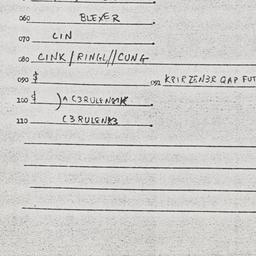 060 BLEXER
070 CIN
080 CINK / RINGL // CUNG
090 $ 092 KRIRZEN3R QAP FUT
100 $ )A C3RULENMK
110 C3RULENK3